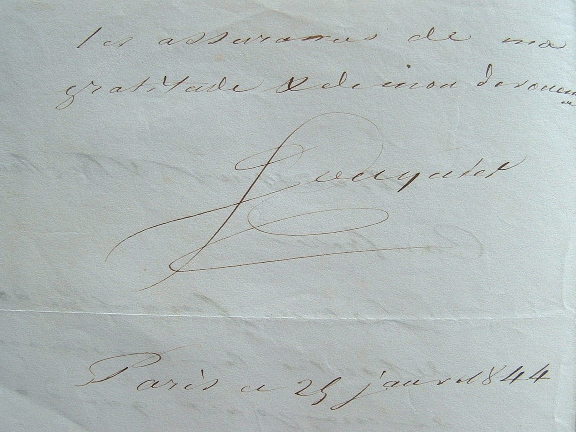 les assurances de ma
gratitude & de mon devouem
Paris ce 25 janv 1844